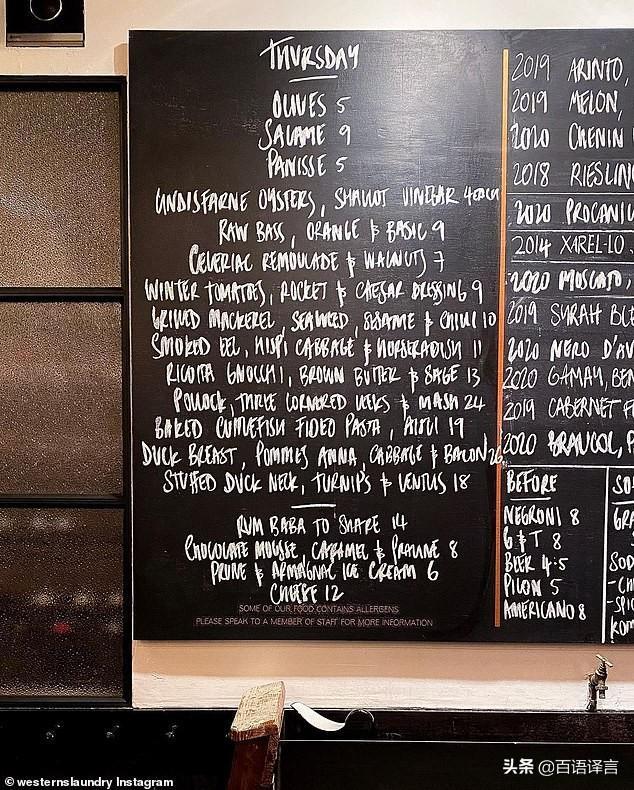 THURSDAY
OLIVES 5
SALAME 9
PANISSE 5
LINDISFARNE OYSTERS, SHALLOT VINEGAR 4 EACH
RAW BASS, ORANGE & BASIL 9
CELERIAC REMOULADE & WALNUTS 7
WINTER TOMATOES, ROCKET & CAESAR DRESSING 9
GRILLED MACKEREL, SEAWEED, SESAME & CHILLI 10
SMOKED EEL, HISPI CABBAGE & HORSERADISH 11
RICOTTA GNOCCHI, BROWN BUTTER & SAGE 13
POLLOCK, THREE CORNERED LEEKS & MASH 24
BAKED CUTTLEFISH FIDEO PASTA, AIOLI 19
DUCK BREAST, POMMES ANNA, CABBAGE & BACON 26
STUFFED DUCK NECK, TURNIPS & LENTILS 18
RUM BABA TO SHARE 14
CHOCOLATE MOUSSE, CARAMEL & PRALINE 8
PRUNE & ARMAGNAC ICE CREAM 6
CHEESE 12
SOME OF OUR FOOD CONTAINS ALLERGENS
PLEASE SPEAK TO A MEMBER OF STAFF FOR MORE INFORMATION
2019 ARINTO,
2019 MELON,
2020 CHENIN
2018 RIESLIN
2020 PROCANIC
2014 XAREL-LO
2020 MOSCATO,
2019 SYRAH BLE
2020 NERO D'AV
2020 GAMAY, BEN
2019 CABERNET F
2020 BRAUCOL, F
BEFORE
NEGRONI 8
G & T 8
BEER 4.5
PILON 5
AMERICANO 8
SO
GRA
SOD
- CH
- SPIC
KOM
© westernslaundry Instagram
头条 @百语译言